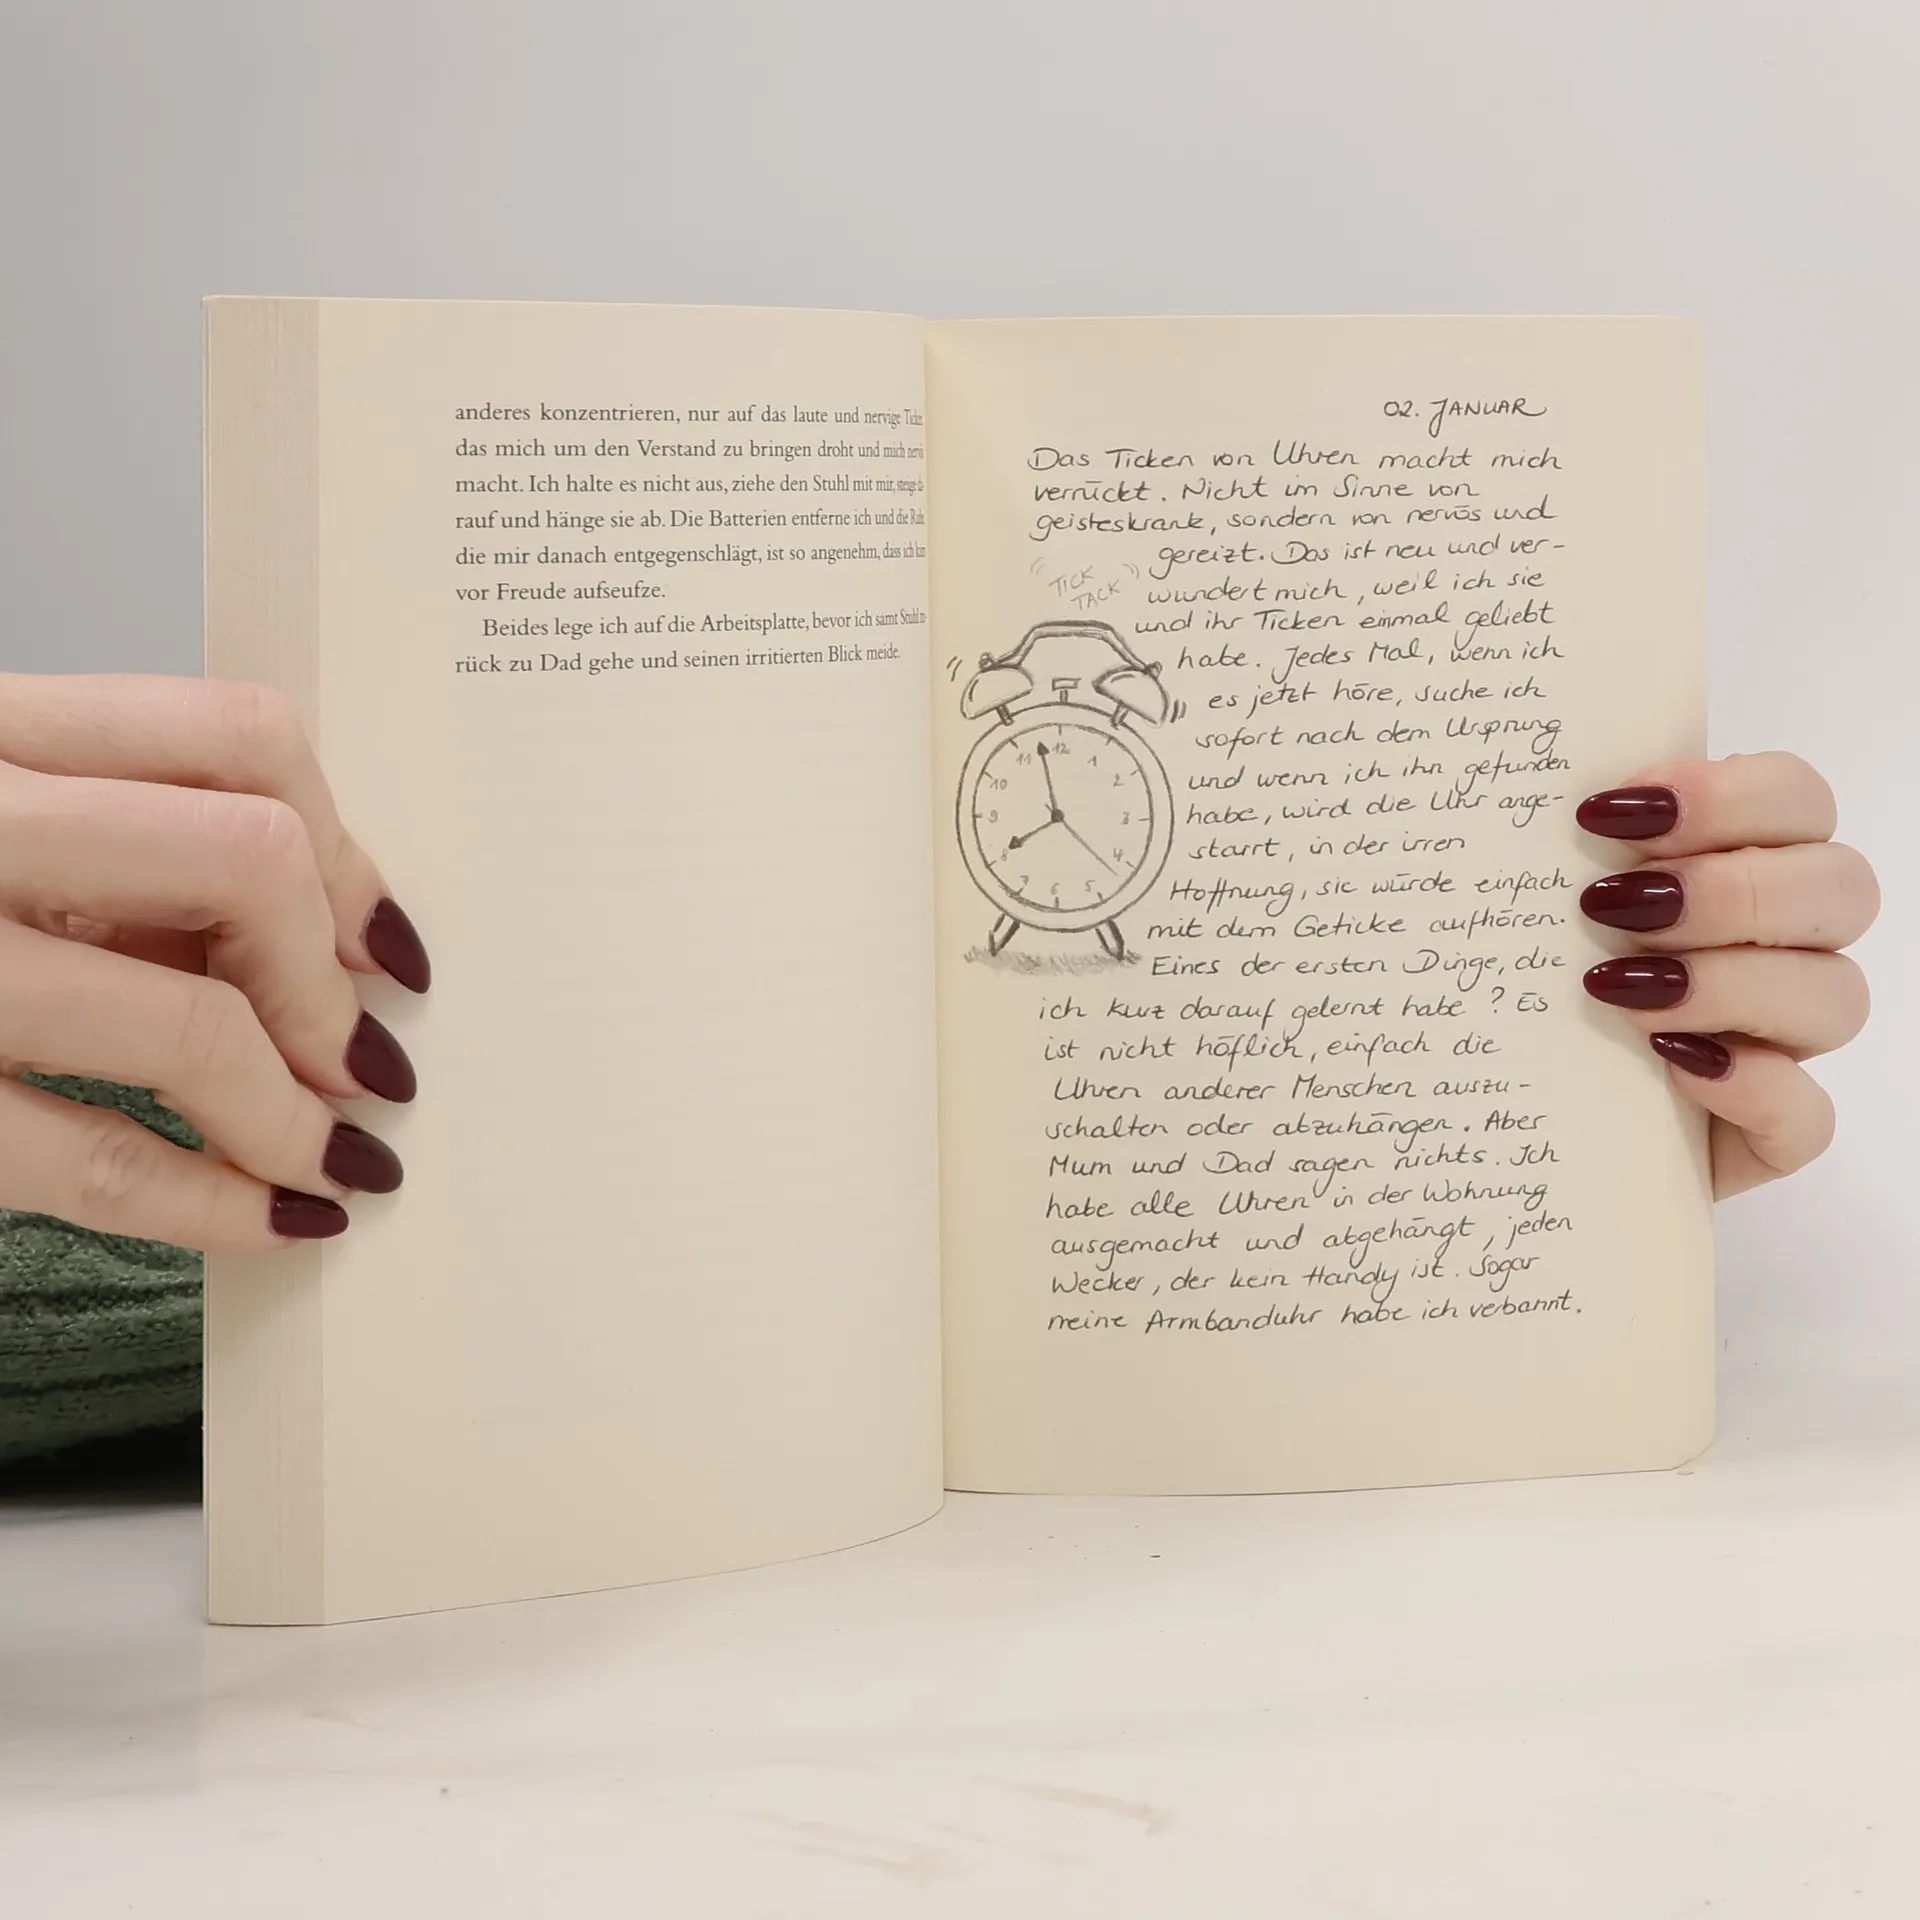 anderes konzentrieren, nur auf das laute und nervige
das mich um den Verstand zu bringen droht und mich
macht. Ich halte es nicht aus, ziehe den Stuhl mit mir, steige da-
rauf und hänge sie ab. Die Batterien entferne ich und die
die mir danach entgegenschlägt, ist so angenehm, dass ich
vor Freude aufseufze.
Beides lege ich auf die Arbeitsplatte, bevor ich samt Stuhl zu-
rück zu Dad gehe und seinen irritierten Blick meide.
02. JANUAR
Das Ticken von Uhren macht mich
verrückt. Nicht im Sinne von
geisteskrank, sondern von nervös und
gereizt. Das ist neu und ver-
wundert mich, weil ich sie
und ihr Ticken einmal geliebt
habe. Jedes Mal, wenn ich
es jetzt höre, suche ich
sofort nach dem Ursprung
und wenn ich ihn gefunden
habe, wird die Uhr ange-
starrt, in der irren
Hoffnung, sie würde einfach
mit dem Geticke aufhören.
Eines der ersten Dinge, die
ich kurz darauf gelernt habe? Es
ist nicht höflich, einfach die
Uhren anderer Menschen auszu-
schalten oder abzuhängen. Aber
Mum und Dad sagen nichts. Ich
habe alle Uhren in der Wohnung
ausgemacht und abgehängt, jeden
Wecker, der kein Handy ist. Sogar
meine Armbanduhr habe ich verbannt.
TICK
TACK
12
1
2
3
4
5
6
7
8
9
10
11